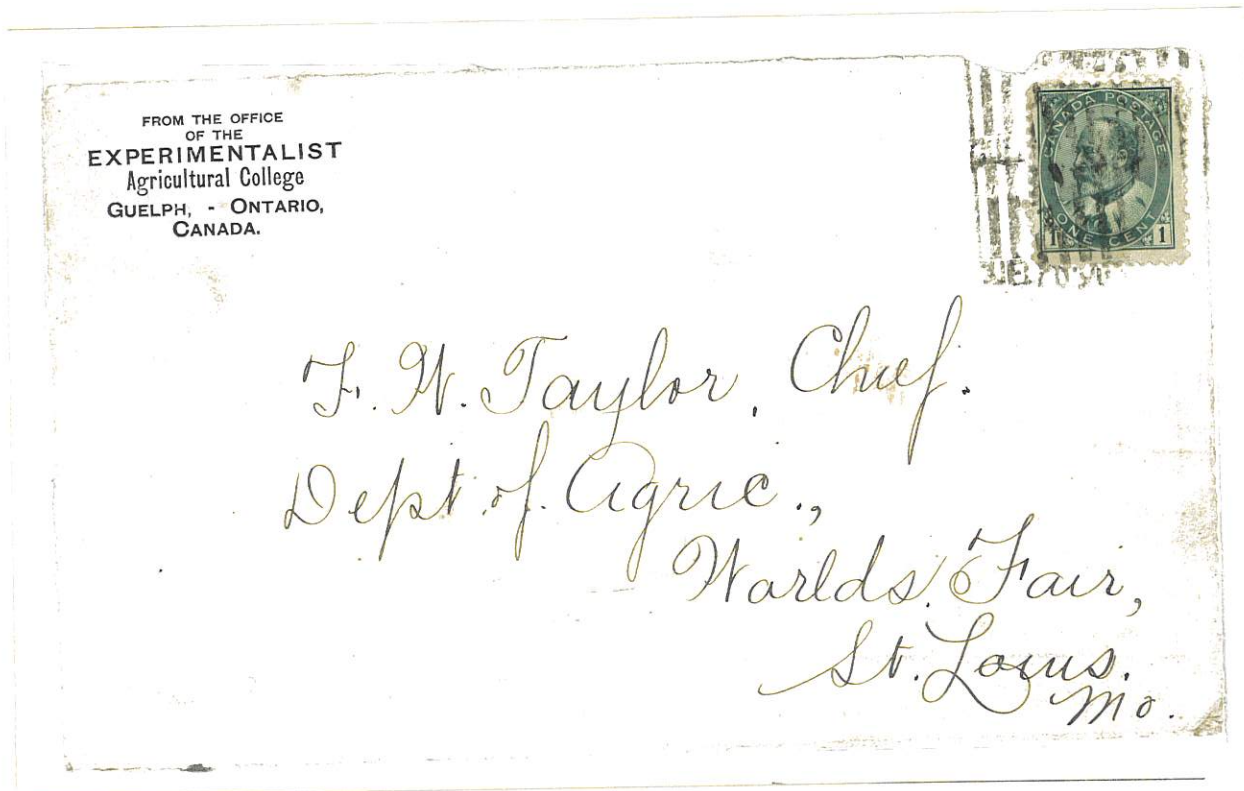 FROM THE OFFICE
OF THE
EXPERIMENTALIST
Agricultural College
GUELPH, - ONTARIO,
CANADA.
CANADA POSTAGE
ONE CENT
1 1
F. W. Taylor, Chief.
Dept. of. Agric.,
Worlds Fair,
St. Louis.
Mo.